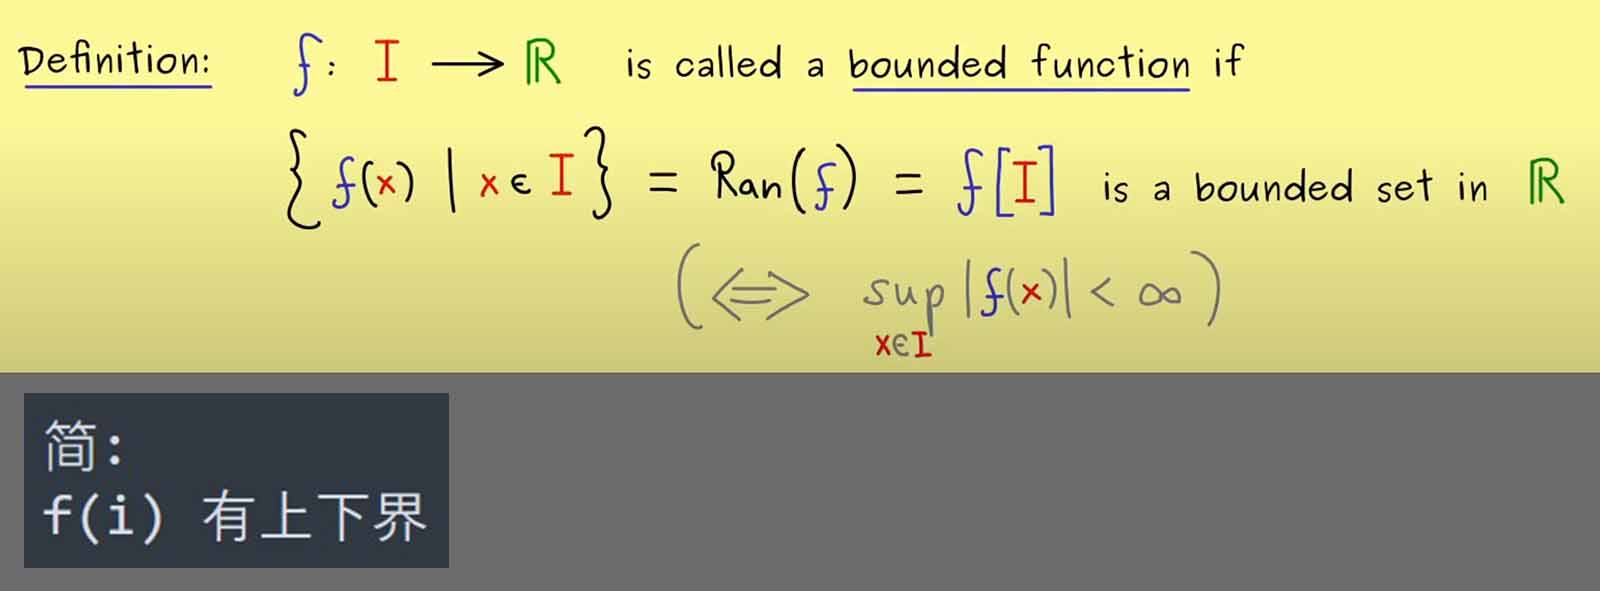 Definition: f: I → ℝ is called a bounded function if
{f(x) | x ∈ I} = Ran(f) = f[I] is a bounded set in ℝ
(⟺ sup |f(x)| < ∞)
x∈I
简:
f(i) 有上下界